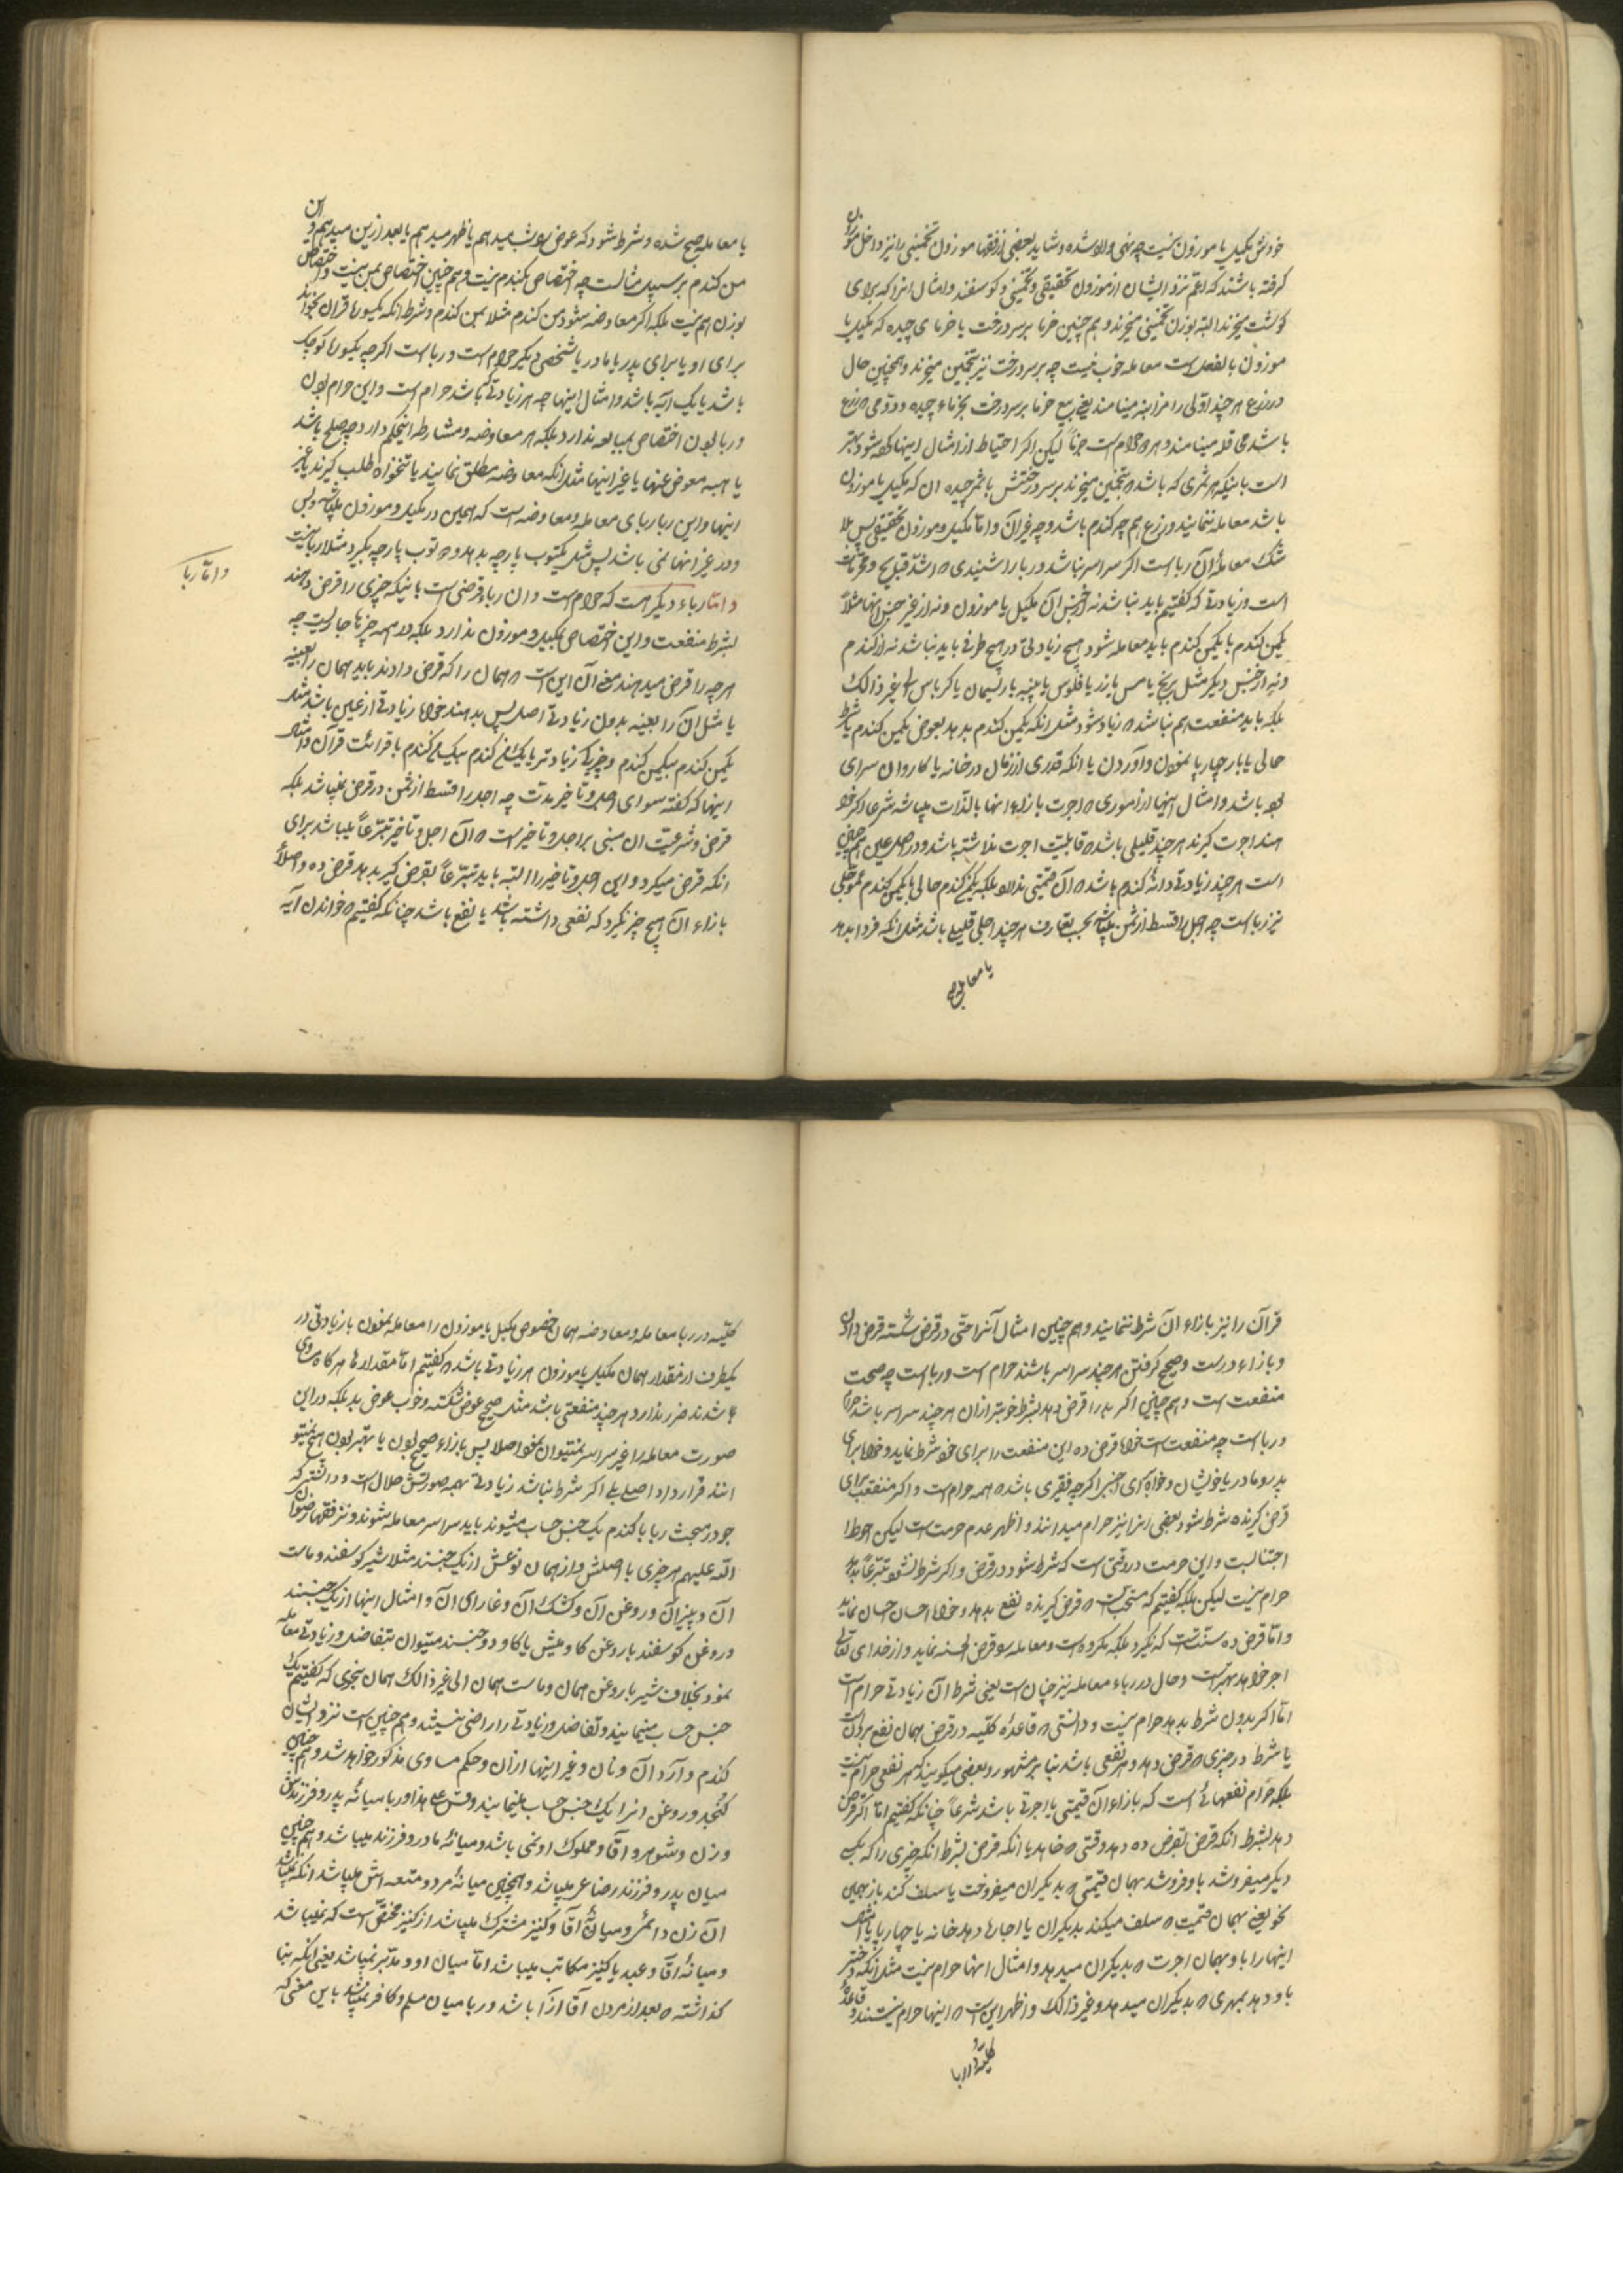 خودش مکیل یا موزون نیست چه نهی وارد شده و شاید بعضی از فقها موزون تخمینی را نیز داخل موزون
گرفته باشند که اعم نزد ایشان از موزون تحقیقی و تخمینی و گوسفند و امثال آنرا که برای
گوشت میخرند البته بوزن تخمینی میخرند و هم چنین خرما بر سر درخت با خرمای چیده که مکیل یا
موزون بالفعل است معامله خوب نیست چه بر سر درخت نیز بتخمین میخرند و همچنین حال
در زرع هر چند اولی را مزابنه مینامند یعنی بیع خرما بر سر درخت بخرماء چیده و دومی که زرع
باشد محاقله مینامند و هر دو حرام است جزماً لیکن اگر احتیاط از امثال اینها کرده شود بهتر
است باینکه هر ثمری که باشد که بتخمین میخرند بر سر درختش با ثمر چیده آن که مکیل یا موزون
باشد معامله ننمایند و زرع هم چه گندم باشد و چه غیر آن و اما مکیل و موزون تحقیقی پس بلا
شک معامله آن ربا است اگر سراسر نباشد و ربا را شنیدی که اشد قبایح و محرمات
است و زیادتی که گفتیم باید نباشد نه از جنس آن مکیل یا موزون و نه از غیر جنس آنها مثلاً
یکمن گندم با یکمن گندم باید معامله شود هیچ زیادتی در هیچ طرفی باید نباشد نه از گندم
و نه از جنس دیگر مثل برنج یا مس یا زر یا فلوس یا پنبه یا ریسمان یا کرباس الی غیر ذالک
بلکه باید منفعت هم نباشد که زیاد شود مثل آنکه یکمن گندم بدهد بعوض یکمن گندم با شرط
حمالی یا بار چارپا نمودن و آوردن یا آنکه قدری از زمان در خانه یا کاروان سرای
او باشد و امثال اینها از اموری که اجرت بازاء اینها بالذات میباشد شرعا اگر خوا
هند اجرت گیرند هر چند قلیلی باشد که قابلیت اجرت نداشته باشد و در اصل عین هم چنین
است هر چند زیادتی دانه گندم باشد که آن قیمتی ندارد بلکه یکمن گندم حالی با یکمن گندم مؤجلی
نیز ربا است چه اجل را قسط از ثمن میباشد بحسب تعارف هر چند اجلی قلیل باشد مثل آنکه فردا بدهد
یا معامله
یا معامله صبح شده و شرط شود که عوض را شب میدهم یا ظهر میدهم یا بعد از این میدهم و این
من گندم بر سبیل مثالست چه اختصاص بگندم نیست و هم چنین اختصاص بمن نیست و اختصاص
بوزن هم نیست بلکه اگر معاوضه شود من گندم مثلا بمن گندم و شرط آنکه یکسوره قرآن بخواند
برای او یا برای پدر یا مادر یا شخصی دیگر حرام است و ربا است اگر چه یکسوره کوچک
باشد یا یک آیه باشد و امثال اینها چه هر زیادتی باشد حرام است و این حرام بودن
و ربا بودن اختصاص بمبایعه ندارد بلکه هر معاوضه و مشارطه اینحکم دارد چه صلح باشد
یا هبه معوض عنها یا غیر اینها مثل آنکه معاوضه مطلق نمایند یا تنخواه طلب گیرند یا غیر
اینها و این ربا ربای معامله و معاوضه است که همین در مکیل و موزون میباشد و بس
و در غیر آنها نمی باشد پس مثل یکتوب پارچه بدهد و دو توب پارچه بگیرد مثلا ربا نیست
و اما رباء دیگر هست که حرام است و آن رباء قرضی است باینکه چیزی را قرض دهند
بشرط منفعت و این اختصاص بمکیل و موزون ندارد بلکه در همه چیزها جاریست چه
هر چه را قرض میدهند معنی آن این است که همان را که قرض دادند باید همان را بعینه
یا مثل آن را بعینه بدون زیادتی اصلا پس بدهند خواه زیادتی از عین باشد مثل
یکمن گندم بیکمن گندم و چیزیکی زیادتر یا یکمن گندم بیکمن گندم با قرائت قرآن و امثال
اینها که گفته سوای اجل و تاخیر مدت چه اجل را قسط از ثمن در قرض نمیباشد بلکه
قرض و شرعیت آن مبنی بر اجل و تاخیر است که آن اجل و تاخیر تبرعاً میباشد برای
آنکه قرض میگیرد و این اجل و تاخیر را البته باید تبرعاً بقرض گیر بدهد قرض ده و اصلاً
بازاء آن هیچ چیز نگیرد که نفعی داشته باشد یا نفع باشد چنانکه گفتیم که خواندن آیه
و اما ربا
قرآن را نیز بازاء آن شرط ننمایند و هم چنین امثال آنرا حتی در قرض شکسته قرض دادن
و بازاء درست و صحیح گرفتن هر چند سراسر باشند حرام است و ربا است چه صحت
منفعت است و هم چنین اگر بد را قرض دهد بشرط خوبتر از آن هر چند سراسر باشد حرام
و ربا است چه منفعت است خواه قرض ده این منفعت را برای خود شرط نماید و خواه برای
پدر و مادر یا خویشان و خواه برای اجنبی اگر چه فقیری باشد که همه حرام است و اگر منفعت برای
قرض گیرنده شرط شود بعضی آنرا نیز حرام میدانند و اظهر عدم حرمت است لیکن احوط
اجتنابست و این حرمت در وقتی است که شرط شود در قرض و اگر شرط نشود تبرعاً بدهد
حرام نیست لیکن بلکه گفتیم که مستحب است که قرض گیرنده نفع بدهد و خواه احسان احسان نماید
و اما قرض ده سنت است که نگیرد بلکه مکروه است و معامله سو قرض الحسنه نماید و از خدای تعالی
اجر خواهد بهتر است و حال در رباء معامله نیز چنان است یعنی شرط آن زیادتی حرام است
اما اگر بدون شرط بدهد حرام نیست و دانستی که قاعدهٔ کلیه در قرض همان نفع بردن است
یا شرط در چیزی که قرض دهد و هر نفعی باشد بنا بر مشهور و بعضی میگویند که هر نفعی حرام نیست
بلکه حرام نفعهائی است که بازاء آن قیمتی یا اجرتی باشد شرعاً چنانکه گفتیم اما اگر قرض
دهد بشرط آنکه قرض بقرض ده دهد وقتی که خواهد یا آنکه قرض بشرط آنکه چیزی را که بیک
دیگر میفروشد باو فروشد بهمان قیمتی که بدیگران میفروخت یا سلف کند باز بهمین
نحو یعنی بهمان قیمت که سلف میکند بدیگران یا اجاره دهد خانه یا چهارپا یا امثال
اینها را باو بهمان اجرت که بدیگران میدهد و امثال اینها حرام نیست مثل آنکه دختر
باو دهد بمهری که بدیگران میدهد و غیر ذالک و اظهر این است که اینها حرام نیستند و قاعدهٔ
کلیه در ربا
کلیه در ربا معامله و معاوضه همان خصوص مکیل یا موزون را معامله نمودن با زیادتی در
یکطرف از مقدار همان مکیل یا موزون هر زیادتی باشد که گفتیم اما مقدارها هر گاه مساوی
باشند ضرر ندارد هر چند منفعتی باشد مثل صحیح عوض شکسته و خوب عوض بد بلکه در این
صورت معامله را غیر سراسر نمیتوان نمود اصلا پس بازاء صحیح بودن یا بهتر بودن هیچ نمیتو
انند قرار داد اصلا بلی اگر شرط نباشد زیادتی بهمه صورتش حلال است و دانستی که
جو در مبحث ربا با گندم یک جنس حساب میشوند باید سراسر معامله شوند و نزد فقها رضوان
الله علیهم هر چیزی با اصلش و از همان نوعش از یک جنسند مثلا شیر گوسفند و ماست
آن و پنیر آن و روغن آن و کشک آن و امثال اینها از یک جنسند
و روغن گوسفند با روغن گاومیش یا گاو دو جنسند میتوان بتفاضل و زیادتی معامله
نمود بخلاف شیر با روغن همان و ماست همان الی غیر ذالک همان نحوی که گفتیم یک
جنس حساب مینمایند و تفاضل و زیادتی را راضی نیستند و هم چنین است نزد ایشان
گندم و آرد آن و نان و غیر اینها از آن و حکم مساوی مذکور خواهد شد و هم چنین
کنجد و روغن آنرا یک جنس حساب مینمایند و قس علی هذا و ربا میانهٔ پدر و فرزندش
و زن و شوهر و آقا و مملوک او نمی باشد و میانهٔ مادر و فرزند میباشد و هم چنین
میان پدر و فرزند رضاعی میباشد و همچنین میانهٔ مرد و متعه اش میباشد آنکه نمیباشد
آن زن دائمی و میانهٔ آقا و کنیز مشترک میباشد از کنیز مختص است که نمیباشد
و میانهٔ آقا و عبد یا کنیز مکاتب میباشد اما میان او و مدبر نمیباشد یعنی آنکه بنا
گذاشته که بعد از مردن آقا آزاد باشد و ربا میان مسلم و کافر نمیباشد باین معنی که